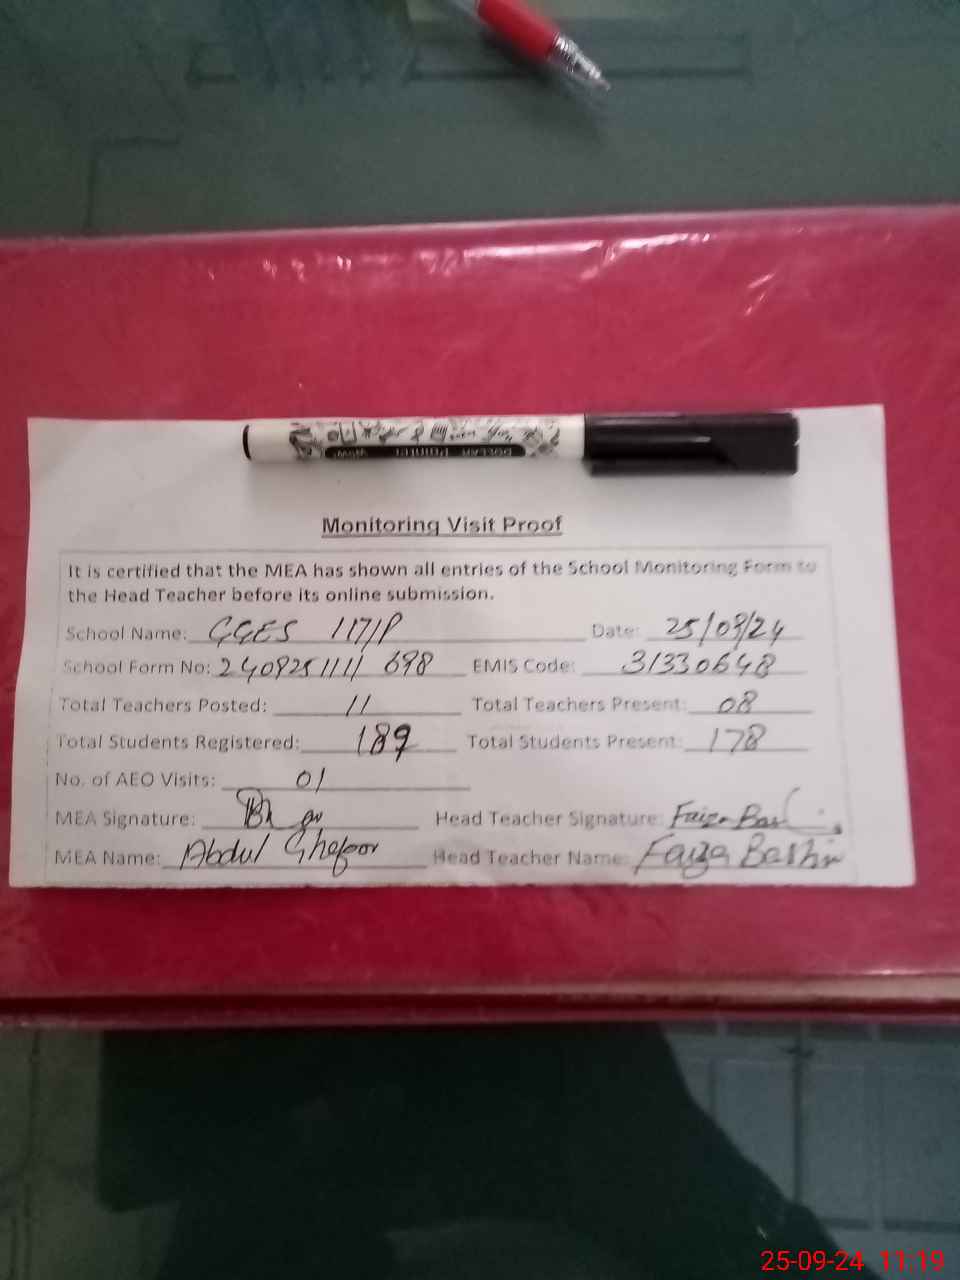 DOLLAR Pointer WOW
Monitoring Visit Proof
It is certified that the MEA has shown all entries of the School Monitoring Form to
the Head Teacher before its online submission.
School Name: GGES 117/P Date: 25/09/24
School Form No: 2409251111 698 EMIS Code: 31330648
Total Teachers Posted: 11 Total Teachers Present: 08
Total Students Registered: 189 Total Students Present: 178
No. of AEO Visits: 01
MEA Signature: Head Teacher Signature: Faiza
MEA Name: Abdul Ghafoor Head Teacher Name: Faiza Bashir
25-09-24 11:19